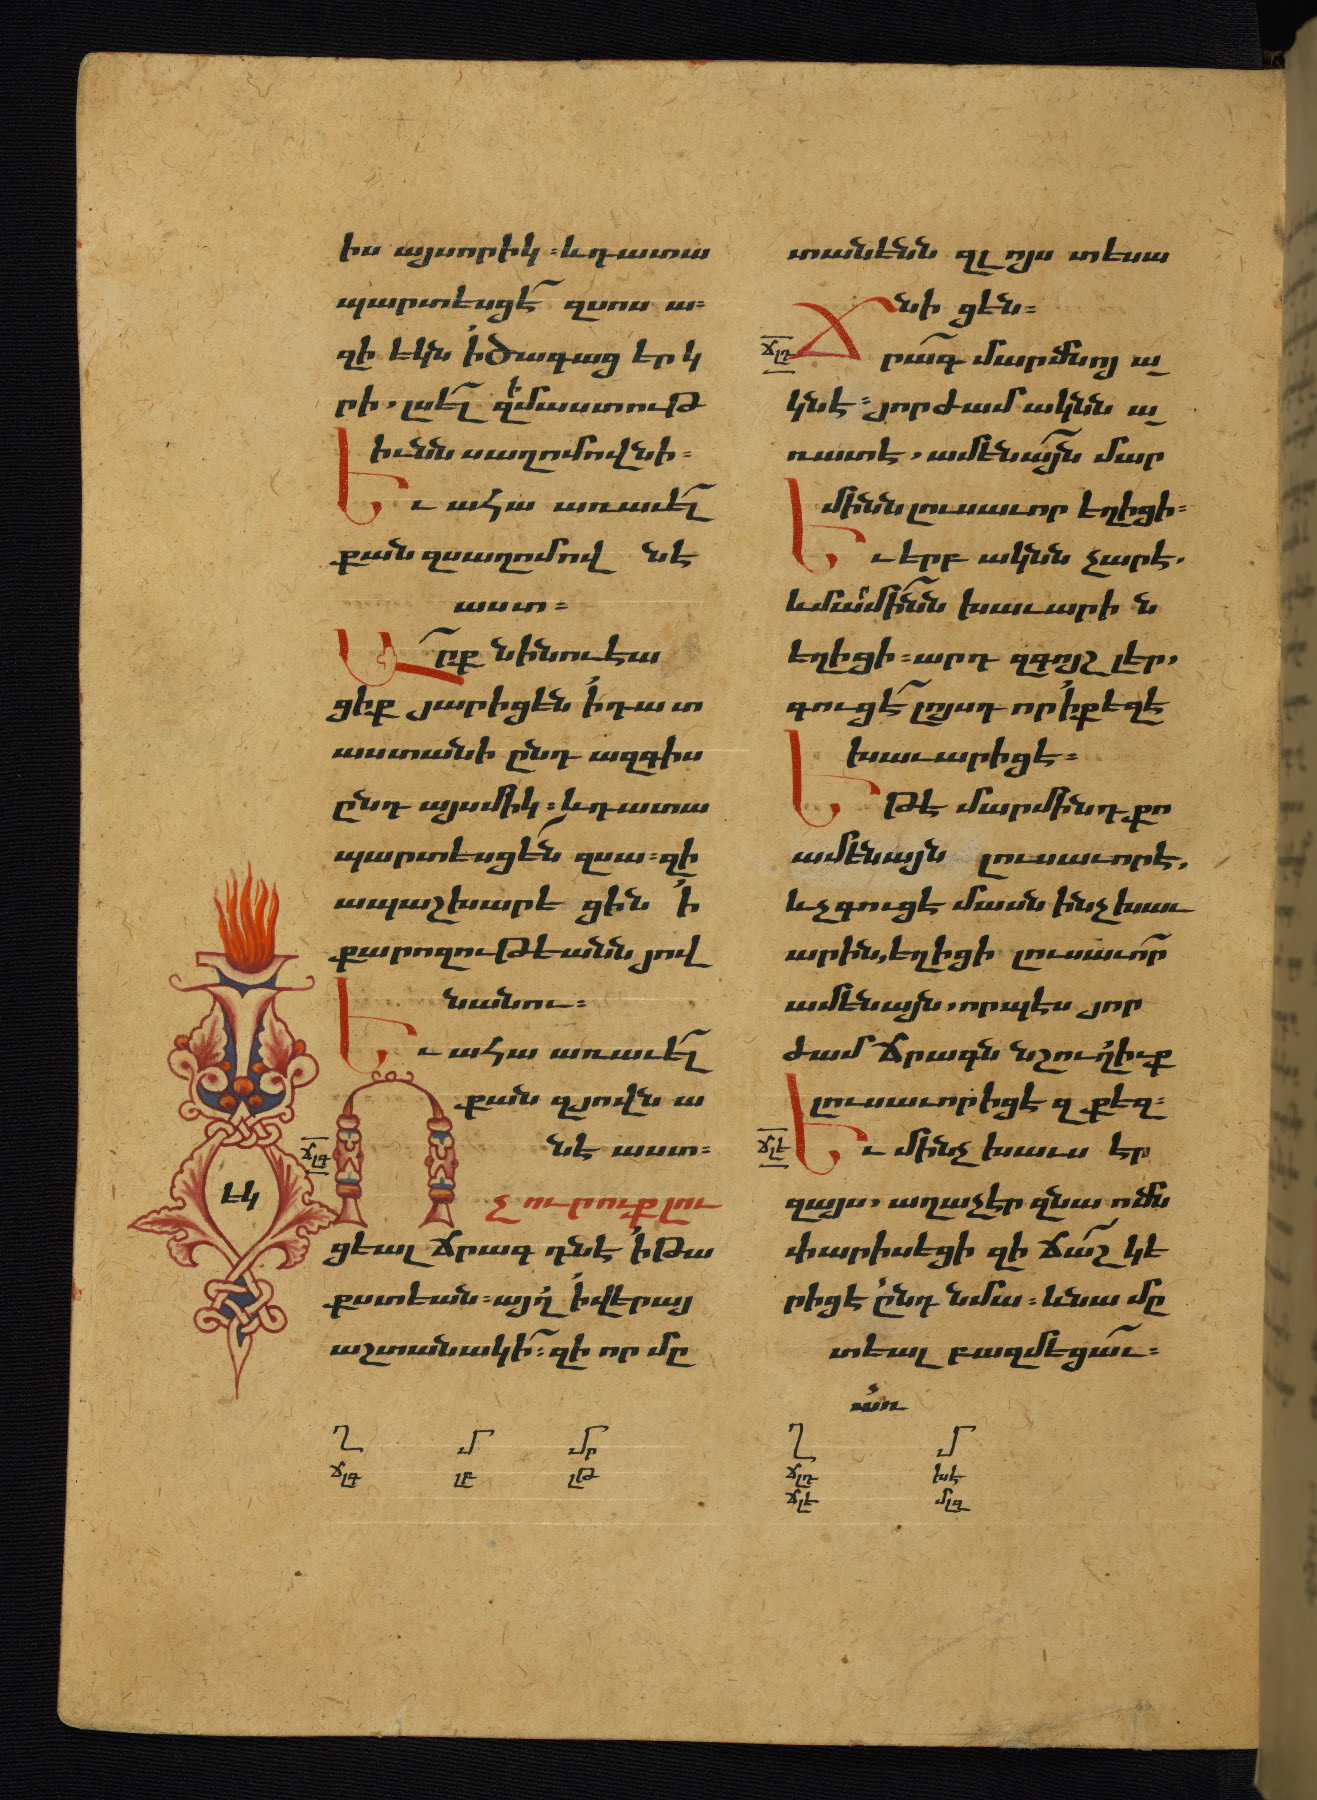 իս այսորիկ։ և դատա
պարտեսցէ զսոս ա։
զի եկն ի ծագաց երկ
րի, լսել զիմաստութ
իւնն սաղոմովնի։
Եւ ահա առաւել
քան զսաղոմով նէ
աստ։
Արք նինուէա
ցիք յարիցեն ի դատ
աստանի ընդ ազգիս
ընդ այսմիկ։ և դատա
պարտեսցեն զսա։ զի
ապաշխարե ցին ի
քարոզութեանն յով
նանու։
Եւ ահա առաւել
քան զյովն ա
նէ աստ։
ճլգ
Ոչ ուրուք լու
եկ
ցեալ ճրագ դնէ ի թա
քստեան։ այղ ի վերայ
աշտանակի։ զի որ մը
տանեն զլոյս տեսա
նիցեն։
ճլդ
Ճրագ մարմնոյ ա
կնէ։ յորժամ ակնն ա
ռատէ, ամենայն մար
մինն լուսաւոր եղիցի։
Եւ երբ ակնն չարէ,
և մարմինն խաւարին
եղիցի։ արդ զգոյշ լեր,
գուցէ լոյսդ որ ի քեզէ
խաւարիցէ։
Եթէ մարմինդ քո
ամենայն լուսաւորէ,
և չգուցէ մասն ինչ խաւ
արին, եղիցի լուսաւոր
ամենայն, որպէս յոր
ժամ ճրագն նշուղիւք
լուսաւորիցէ զքեզ։
ճլե
Եւ մինչ խաւս եր
զայս, աղաչէր զնա ոմն
փարիսեցի զի ճաշ կե
րիցէ ընդ նմա։ և նա մը
տեալ բազմեցաւ։
Ղ Մ Մր
ճլգ լբ լթ
Ղ Մ
ճլդ
ճլե մլգ